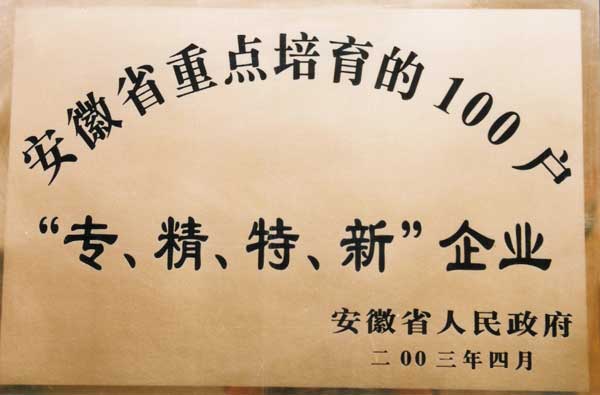 安徽省重点培育的100户
“专、精、特、新”企业
安徽省人民政府
二00三年四月